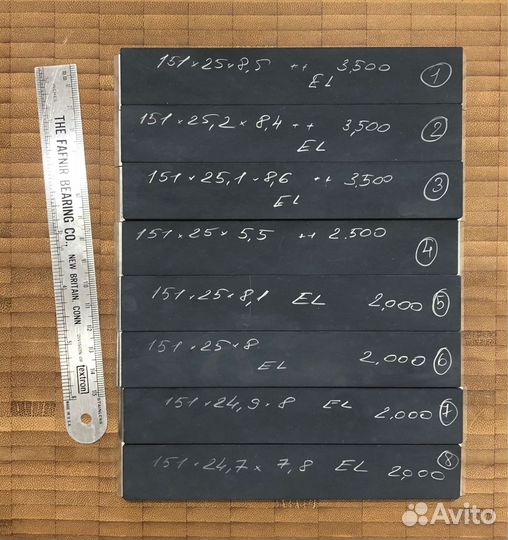 151×25×8,5 ++ 3,500 1
EL
151×25,2×8,4 ++ 3,500 2
EL
151×25,1×8,6 ++ 3,500 3
EL
151×25×5,5 ++ 2.500 4
151×25×8,1 EL 2,000 5
151×25×8 2,000 6
EL
151×24,9×8 EL 2.000 7
151×24,7× 7,8 EL 2,000 8
THE FAFNIR BEARING CO.
NEW BRITAIN, CONN
DIVISION OF
textron
MADE IN U.S.A.
Avito